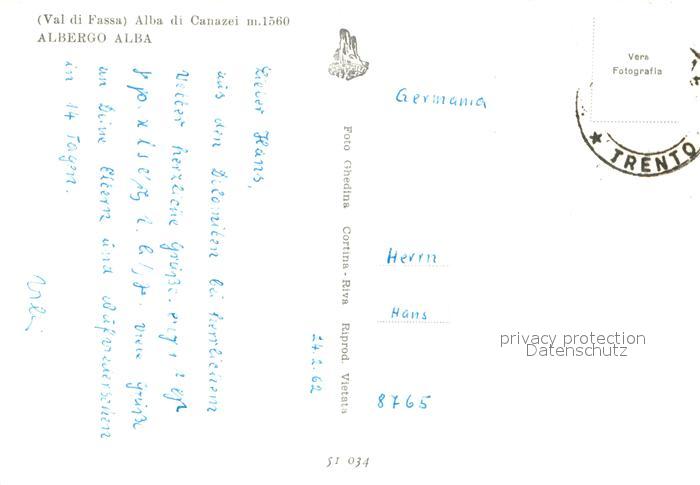 (Val di Fassa) Alba di Canazei m.1560
ALBERGO ALBA
Lieber Hans,
aus den Dolomiten bei herrlichem
Wetter herzliche Grüße.
viele Grüße
an Deine Eltern und Aufwiedersehen
in 14 Tagen.
24.2.62
Foto Ghedina Cortina-Riva Riprod. Vietata
51 034
Vera
Fotografia
TRENTO
Germania
Herrn
Hans
8765
privacy protection
Datenschutz